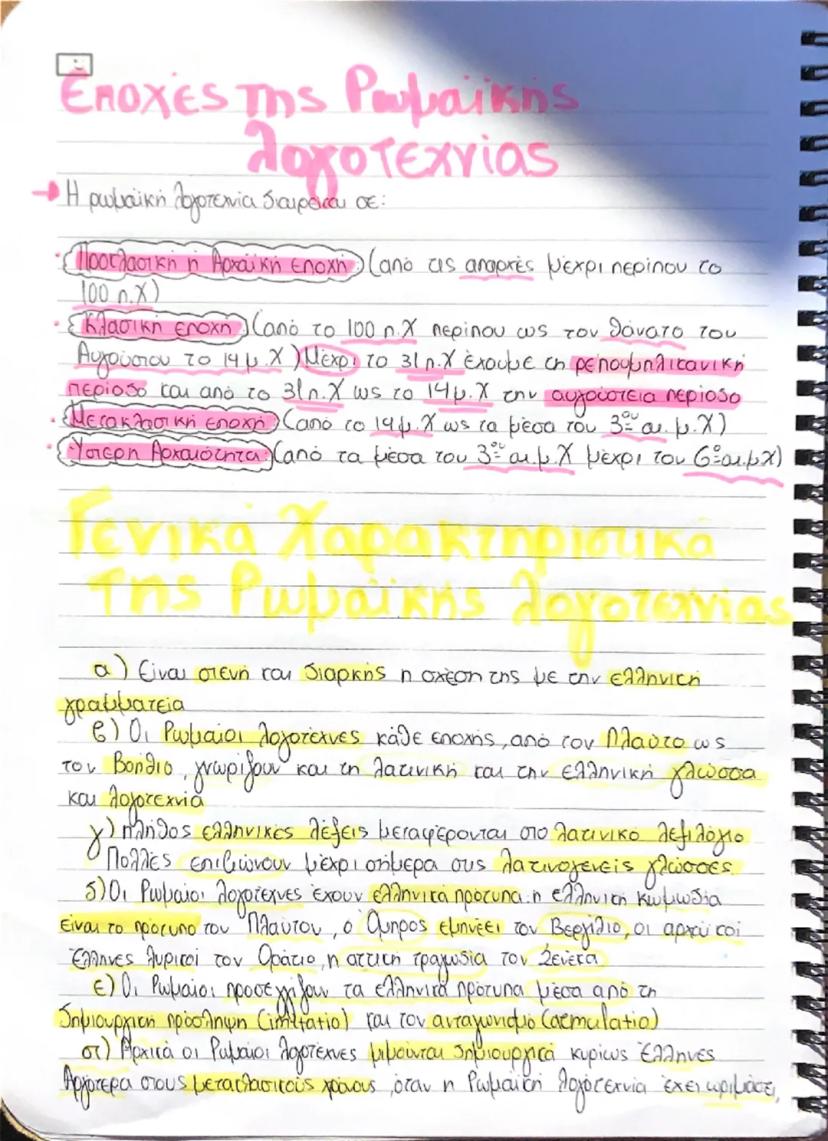 Εποχές της Ρωμαϊκής
λογοτεχνίας
→ Η ρωμαϊκή λογοτεχνία διαιρείται σε:
· Προκλασική ή Αρχαϊκή εποχή (από τις απαρχές μέχρι περίπου το
100 π.Χ)
· Κλασική εποχή (από το 100 π.Χ περίπου ως τον θάνατο του
Αυγούστου το 14 μ.Χ) Μέχρι το 31 π.Χ έχουμε τη ρεπουμπλικανική
περίοδο και από το 31 π.Χ ως το 14 μ.Χ την αυγούστεια περίοδο
· Μετακλασική εποχή (από το 14 μ.Χ ως τα μέσα του 3ου αι. μ.Χ)
· Ύστερη Αρχαιότητα (από τα μέσα του 3ου αι. μ.Χ μέχρι τον 6ο αι. μ.Χ)
Γενικά Χαρακτηριστικά
της Ρωμαϊκής λογοτεχνίας
α) Είναι στενή και διαρκής η σχέση της με την ελληνική
γραμματεία
β) Οι Ρωμαίοι λογοτέχνες κάθε εποχής, από τον Πλαύτο ως
τον Βοήθιο, γνωρίζουν και τη λατινική και την ελληνική γλώσσα
και λογοτεχνία
γ) πλήθος ελληνικές λέξεις μεταφέρονται στο λατινικό λεξιλόγιο
Πολλές επιβιώνουν μέχρι σήμερα στις λατινογενείς γλώσσες.
δ) Οι Ρωμαίοι λογοτέχνες έχουν ελληνικά πρότυπα. η ελληνική κωμωδία
είναι το πρότυπο του Πλαύτου, ο Όμηρος εμπνέει τον Βεργίλιο, οι αρχαϊκοί
Έλληνες λυρικοί τον Οράτιο, η αττική τραγωδία τον Σενέκα
ε) Οι Ρωμαίοι προσεγγίζουν τα ελληνικά πρότυπα μέσα από τη
δημιουργική πρόσληψη (imitatio) και τον ανταγωνισμό (aemulatio)
στ) Αρχικά οι Ρωμαίοι λογοτέχνες μιμούνται δημιουργικά κυρίως Έλληνες
Αργότερα στους μετακλασικούς χρόνους, όταν η Ρωμαϊκή λογοτεχνία έχει ωριμάσει,